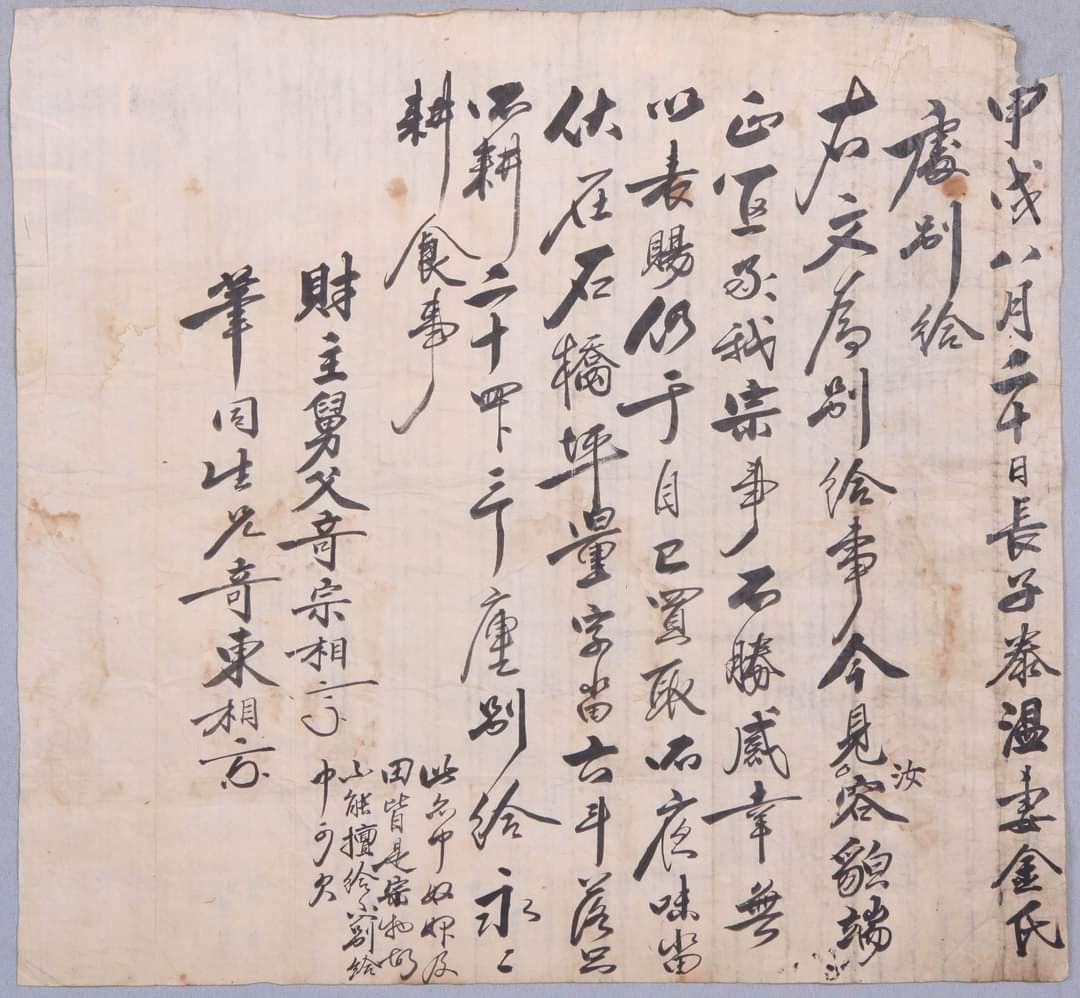 甲戌八月二十日長子泰溫妻金氏
處別給
右文爲別給事今見汝容貌端
正宜承我宗事不勝感幸無
以表賜仍于自己買取
伏在石橋坪量字畓六斗落只
所耕二十四卜三 庫別給永々
耕食事
財主舅父奇宗相
筆同生兄奇東相
此 中奴婢及
田皆是宗物故
不能擅給 別給
中可欠